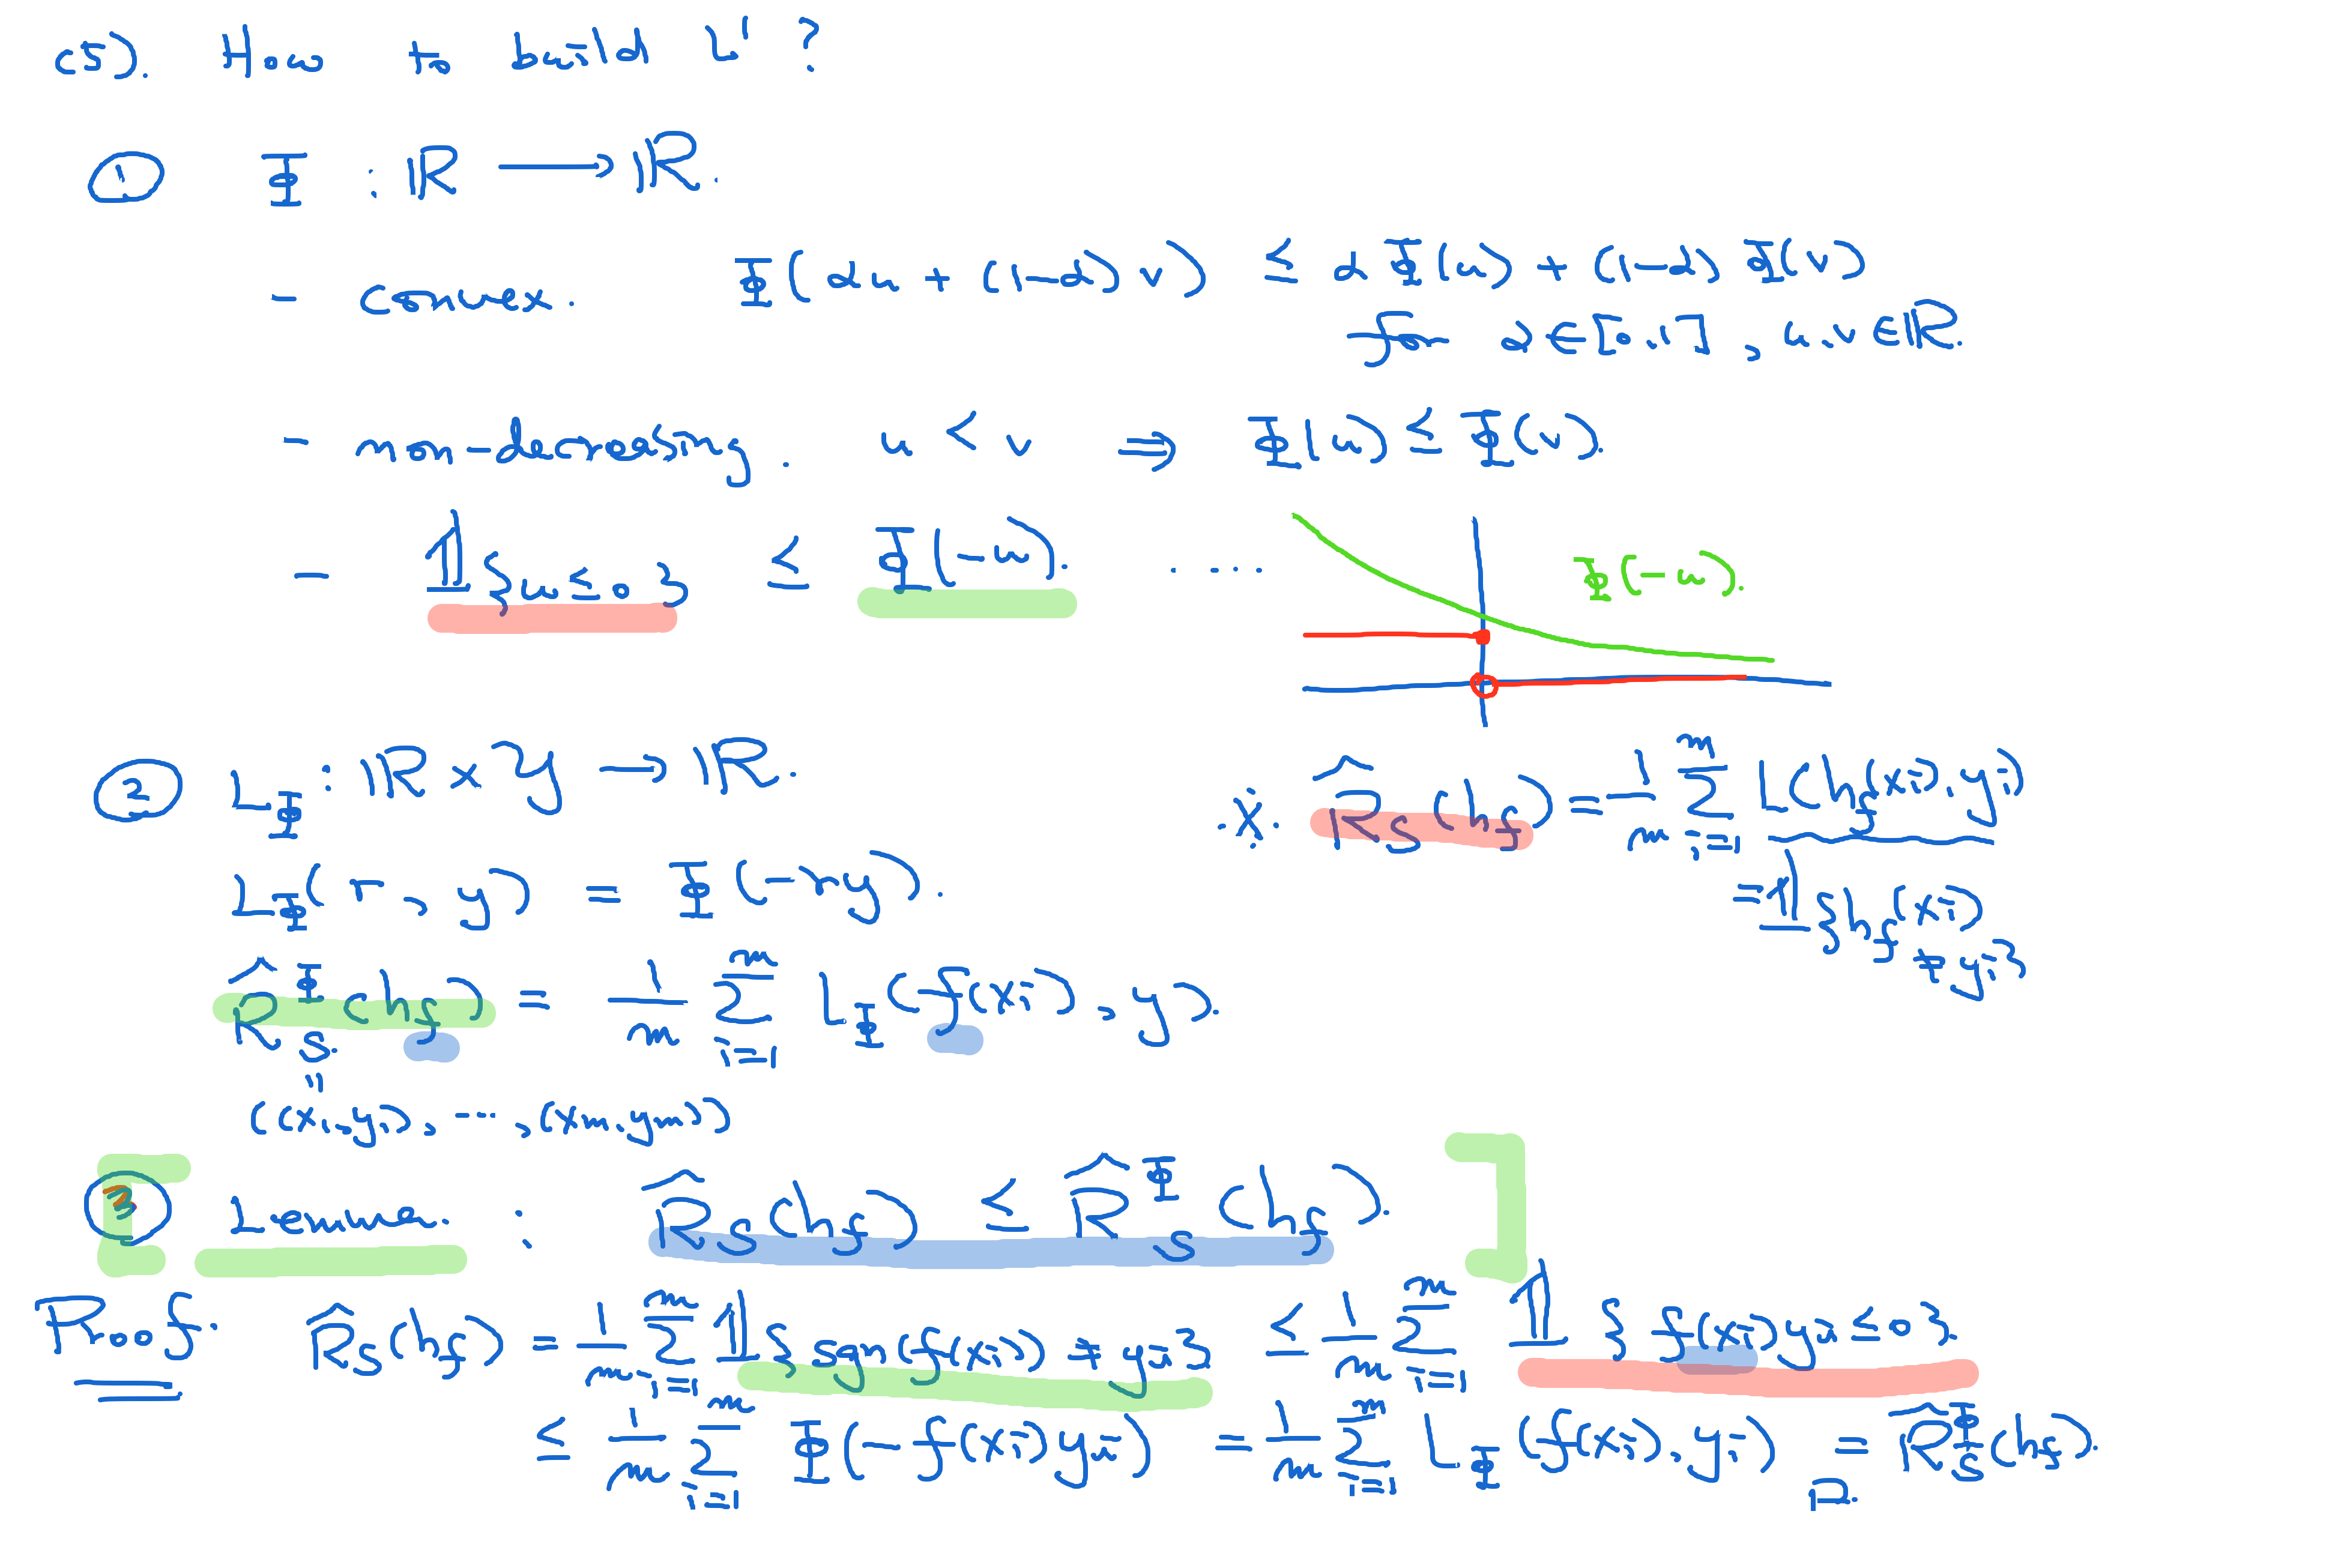 (5). How to build L' ?
① Φ : ℝ ⟶ ℝ.
- convex. Φ(αu + (1-α)v) ≤ αΦ(u) + (1-α)Φ(v)
for α∈[0,1], u,v∈ℝ.
- non-decreasing. u < v ⇒ Φ(u) ≤ Φ(v).
- 𝟙{u≤0} ≤ Φ(-u). ....
Φ(-u).
② L_Φ : ℝ × 𝒴 → ℝ.
L_Φ(r, y) = Φ(-ry).
※. R̂_S(h_f) = 1/m Σ_{i=1}^m L(h_f(x_i), y_i)
= 𝟙{h_f(x_i) ≠ y_i}
R̂_S^Φ(h_f) = 1/m Σ_{i=1}^m L_Φ(f(x_i), y_i).
"
((x_1,y_1), ..., (x_m,y_m))
③ Lemma : R̂_S(h_f) ≤ R̂_S^Φ(h_f).
Proof. R̂_S(h_f) = 1/m Σ_{i=1}^m 𝟙{sgn(f(x_i)) ≠ y_i} ≤ 1/m Σ_{i=1}^m 𝟙{f(x_i)y_i ≤ 0}
≤ 1/m Σ_{i=1}^m Φ(-f(x_i)y_i) = 1/m Σ_{i=1}^m L_Φ(f(x_i), y_i) = R̂_S^Φ(h_f).